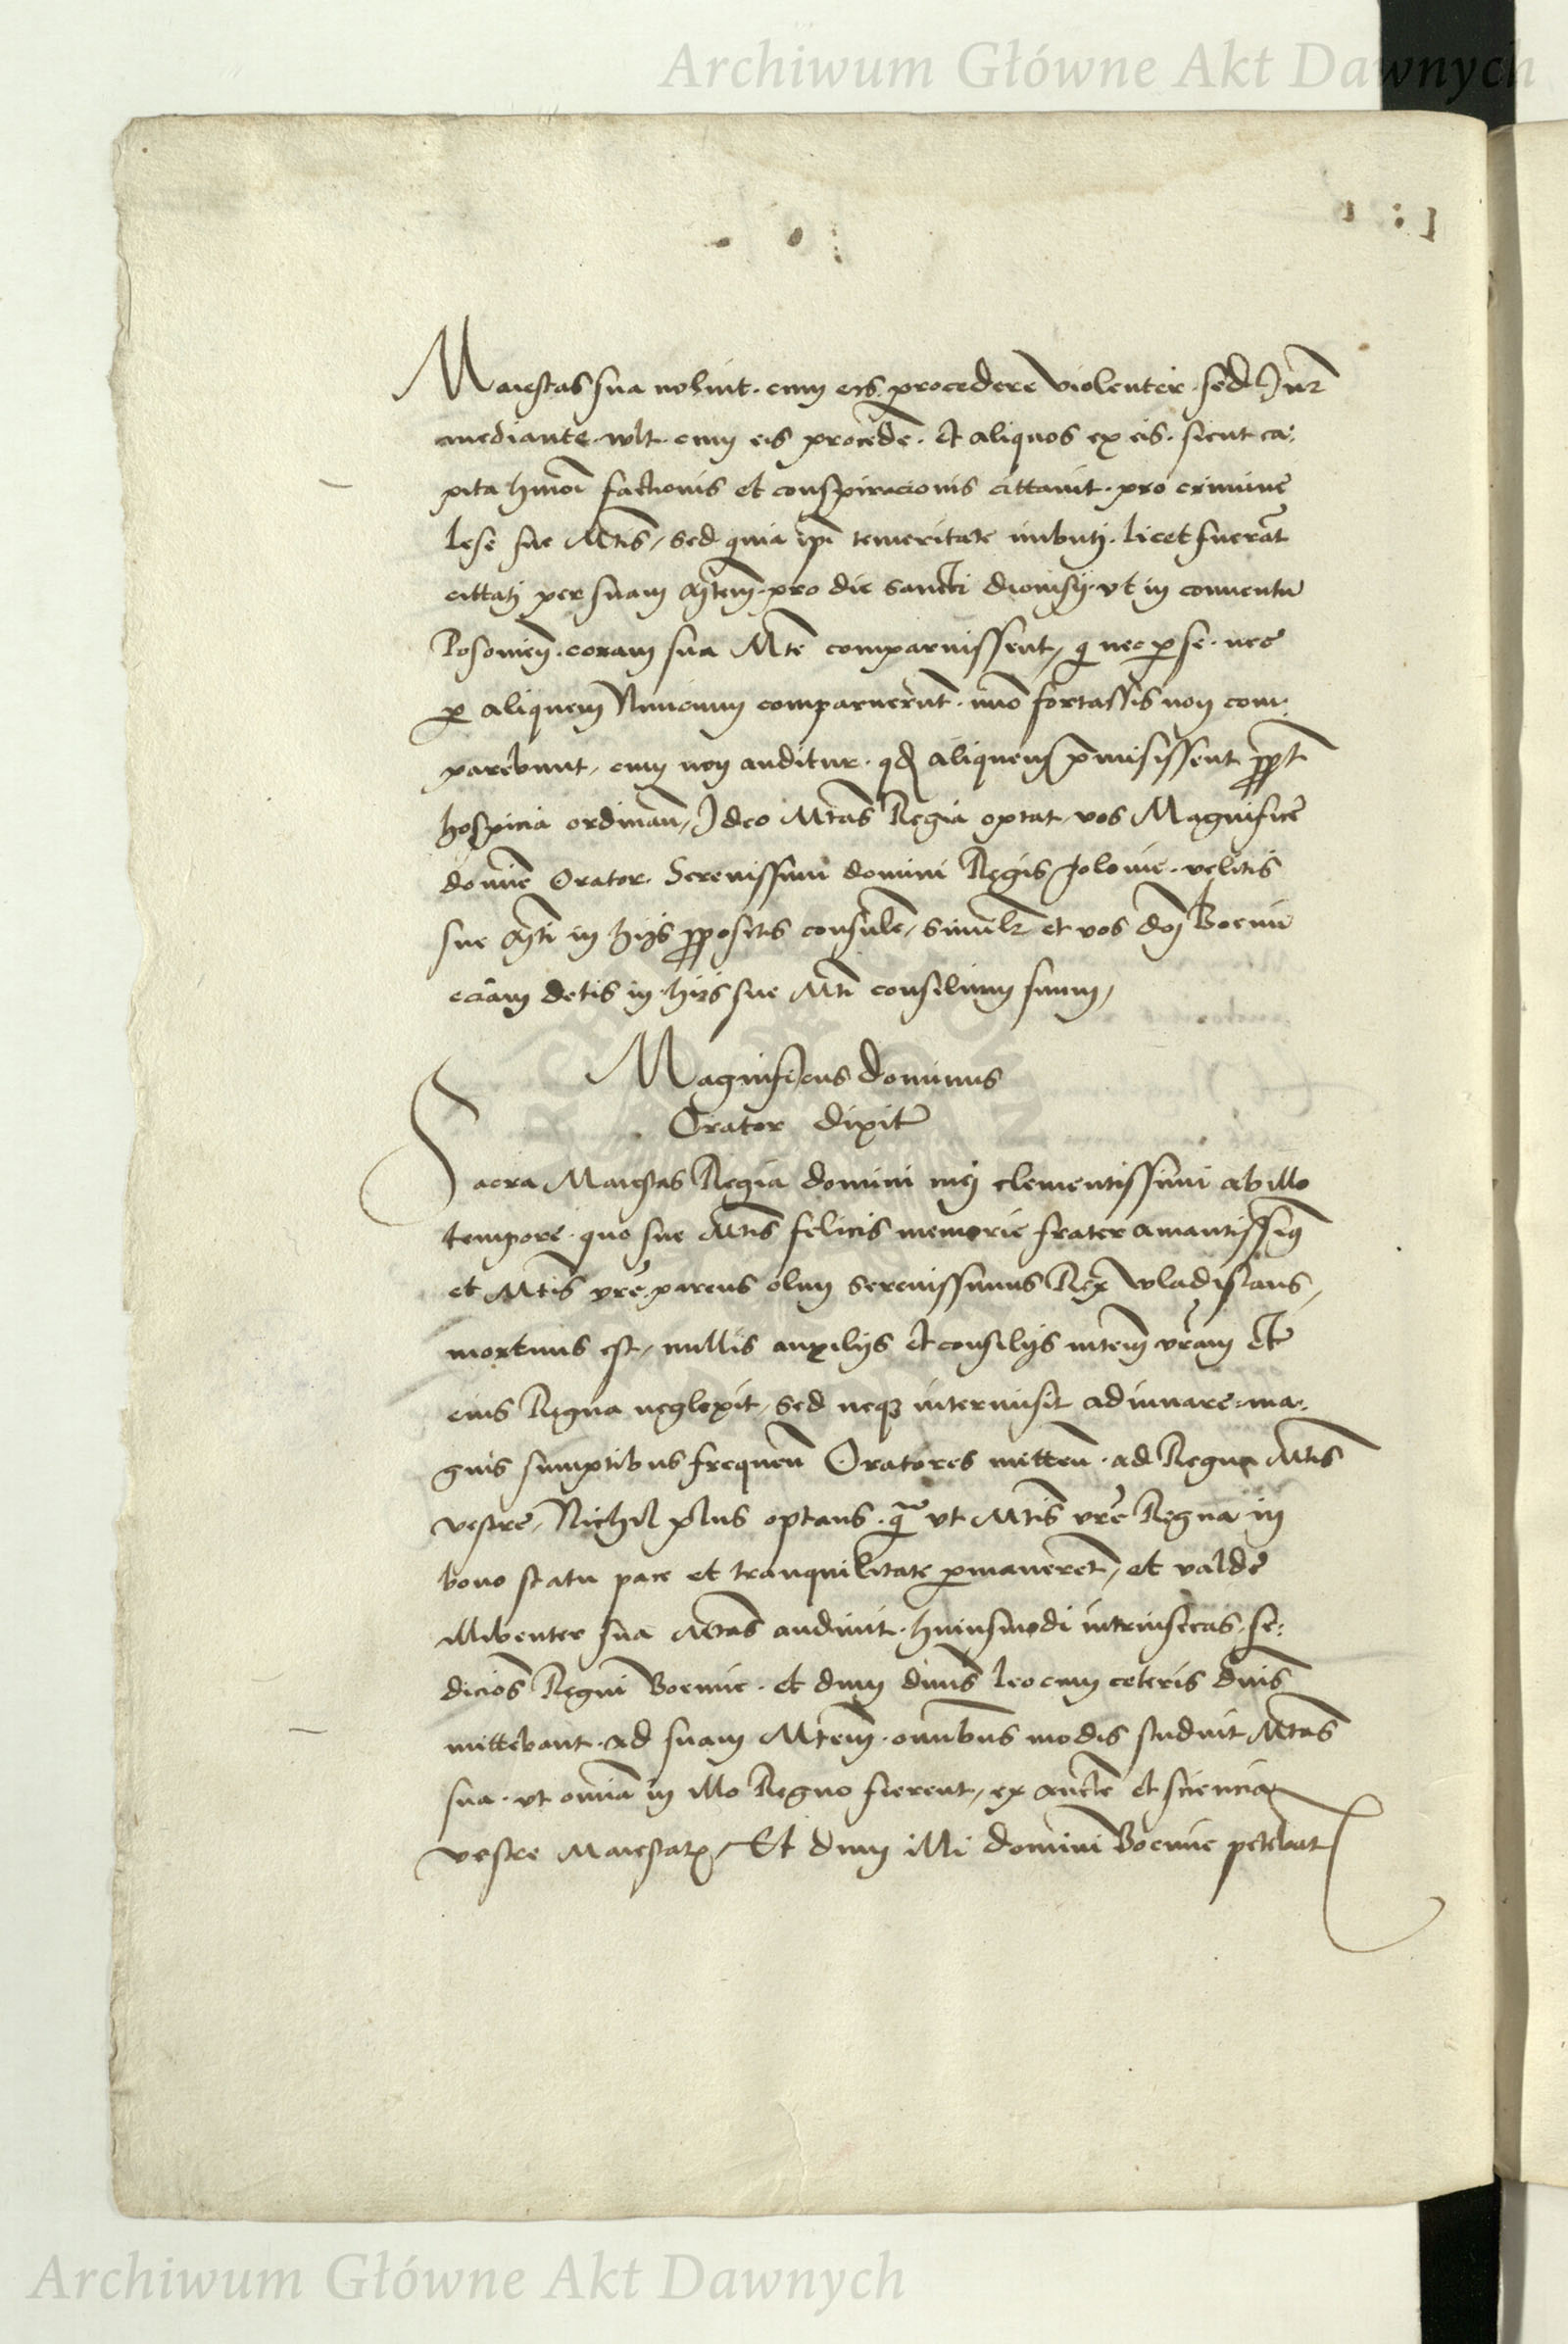 Archiwum Główne Akt Dawnych
Maiestas sua noluit. cum eis. procedere violenter. sed Jure
mediante. wlt. cum eis procedere. et aliquos ex eis. sicut ca:
pita hmoi factionis et conspiracionis cittauit. pro crimine
lese sue Mtis, sed quia ipi temeritate imbuti. licet fuerat
cittati per suam Mtem. pro die sancti dionisij. vt in conuentu
Posonien. coram sua Mte comparuissent, qui nec per se. nec
per aliquem Nuncium comparuerunt. imo fortassis non com:
parebunt, cum non auditur. qd aliquem premisissent propt
hospicia ordinan, Ideo Mtas Regia optat, vos Magnifice
domine Orator. Serenissimi domini Regis Polonie. velitis
sue Mti in hijs propositis consule, similr et vos dni Boemi
eciam detis in hijs sue Mti consilium suum,
Magnificus dominus
Orator dixit
Sacra Maiestas Regia domini mei clementissimi ab illo
tempore. quo sue Mtis felicis memorie frater amantissimus
et Mtis vre. parens olim serenissimus Rex wladislaus,
mortuus est, nullis auxilijs et consilijs mtem vram et
eius Regna neglexit, sed neque intermisit adiuuare. ma:
gnis sumptibus frequen Oratores mitten. ad Regna Mtis
vestre, Nichil plus optans. qua vt Mtis vre Regna in
bono statu pace et tranquilitate permaneret, et valde
illibenter sua Mtas audiuit. huiusmodi intrinsecas. se:
dicios Regni Boemie. et dum dnus leo cum ceteris dnis
mittebant. ad suam Mtem. omnibus modis studuit Mtas
sua. vt omnia in illo Regno fierent, ex aucte et sciencia
vestre Maiestatis, Et dum illi domini Boemie petebat
Archiwum Główne Akt Dawnych